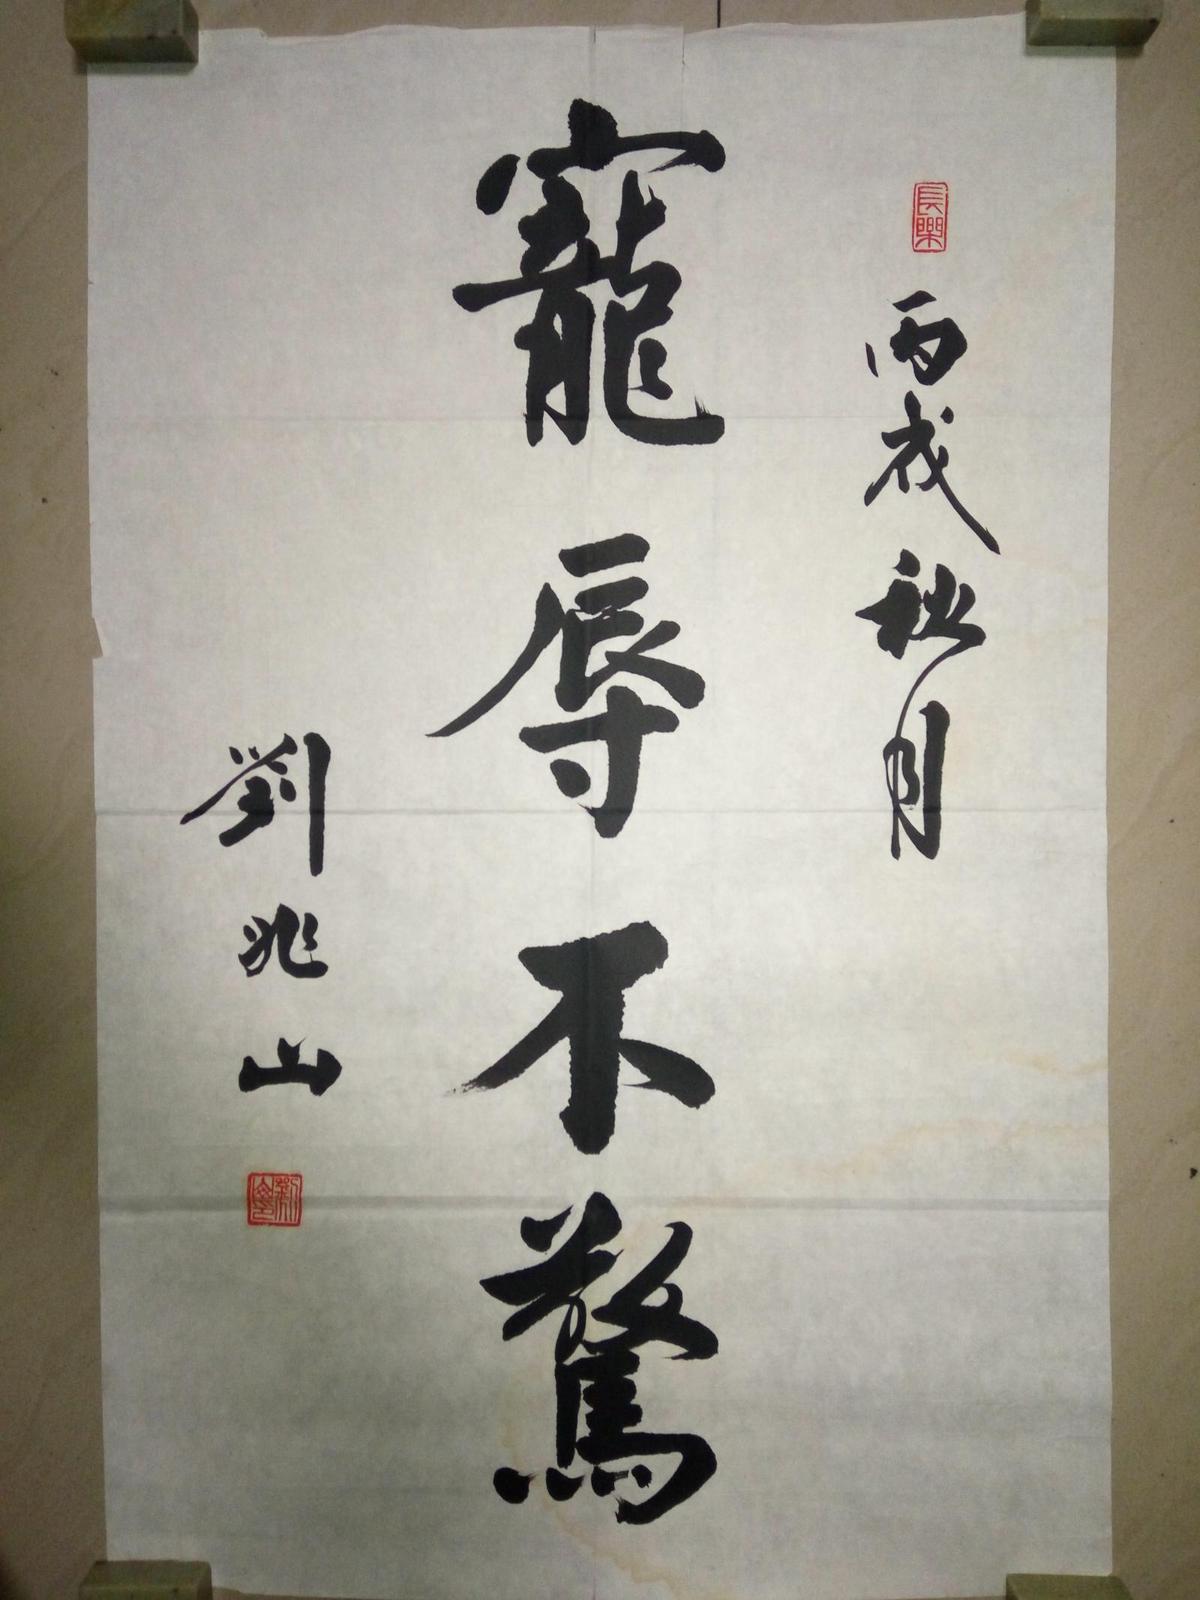 長樂
丙戌秋月
寵辱不驚
劉兆山